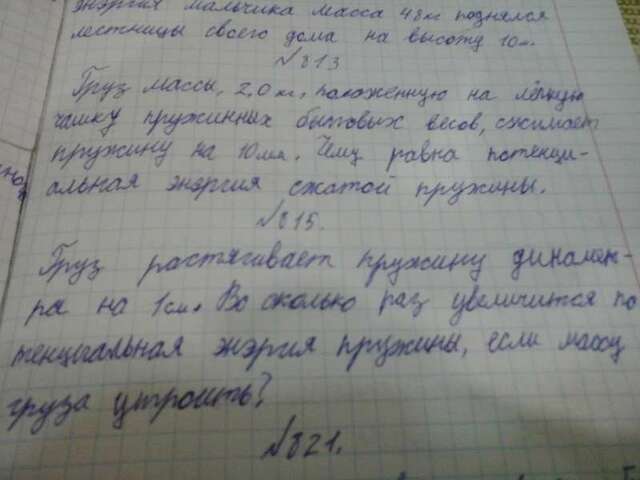 энэргия мальчика масса 48кг поднялся
лестницы своего дома на высоту 10м.
№813
Груз массы, 2,0 кг, положенную на лёгкую
чашку пружинных бытовых весов, сжимает
пружину на 10мм. Чему равна потенци-
альная энэргия сжатой пружины.
№815.
Груз растягивает пружину динамомет-
ра на 1см. Во сколько раз увеличится по
тенциальная энэргия пружины, если массу
груза утроить?
№821.